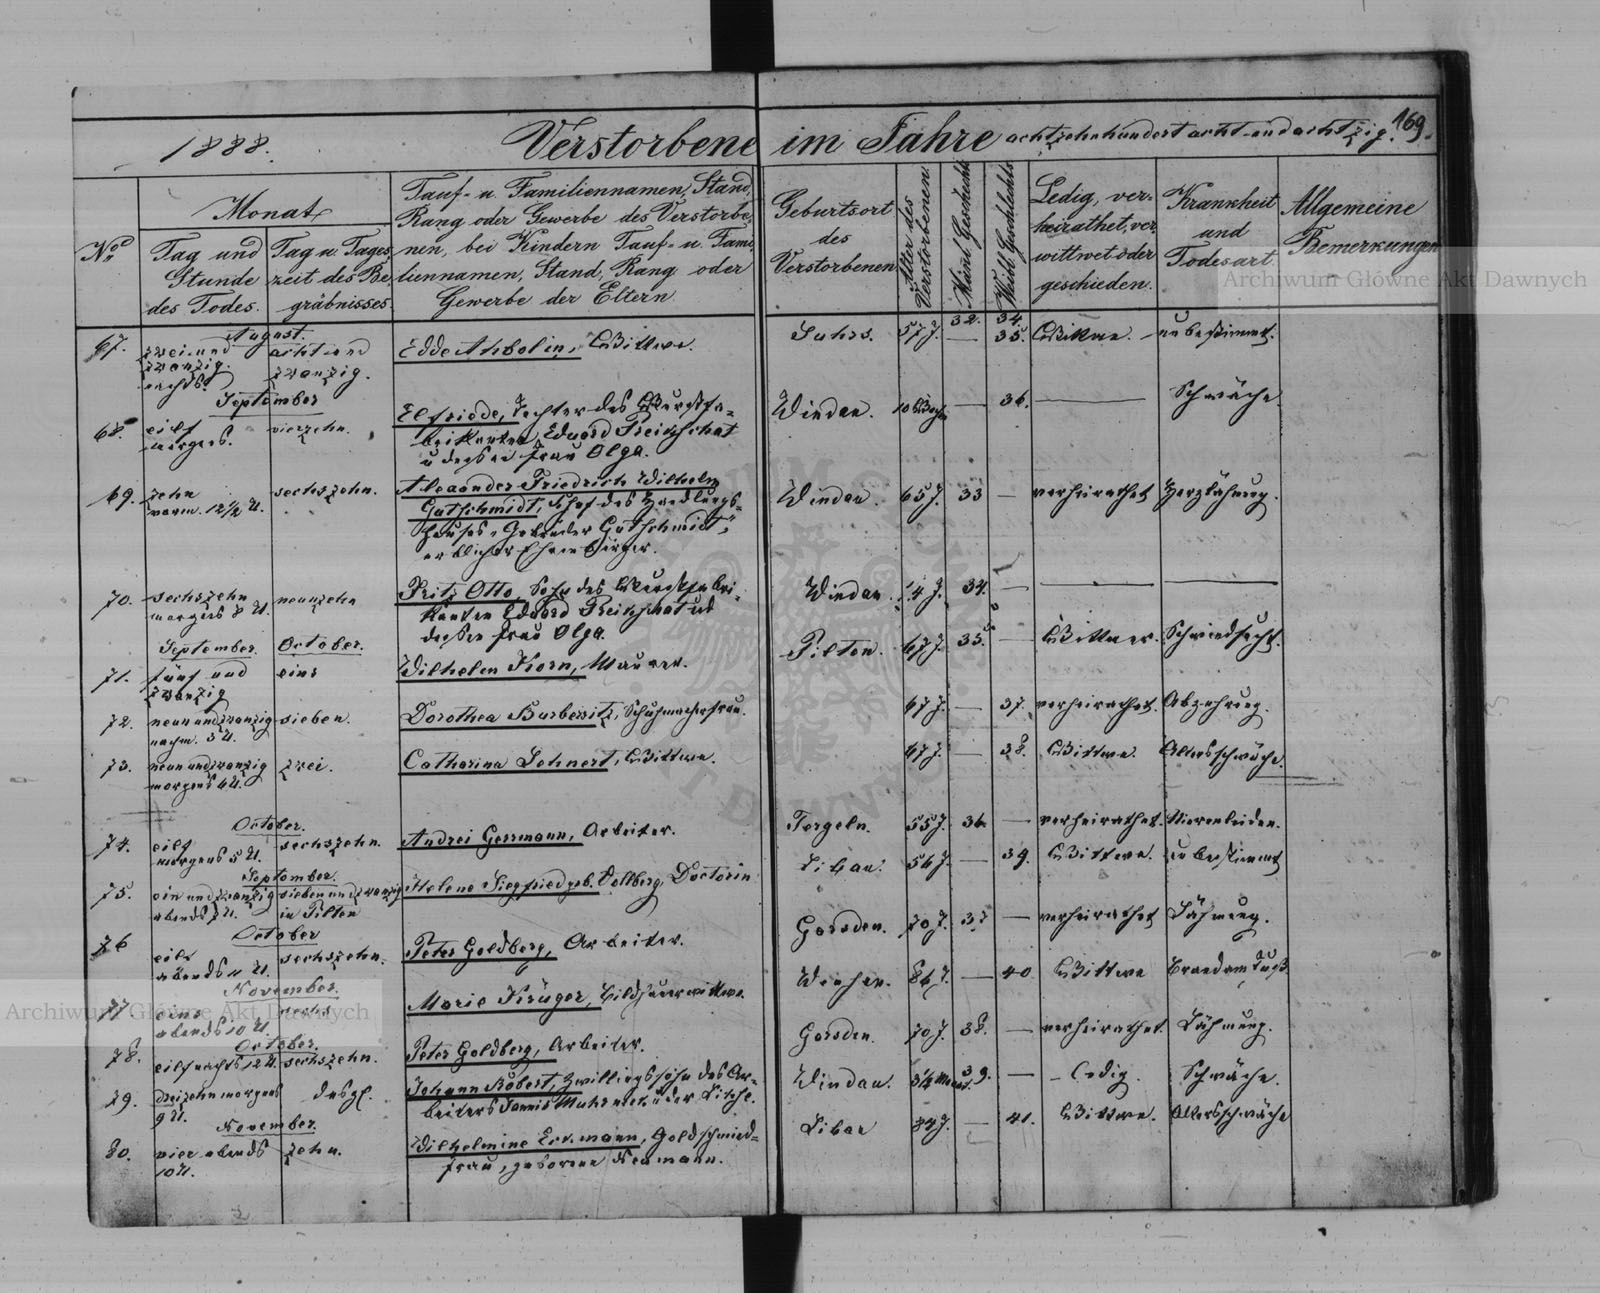 169.
1888.
Verstorbene im Jahre achtzehnhundert acht und achtzig.
No
Monat
Tag und Stunde des Todes.
Tag u. Tageszeit des Begräbnisses.
Tauf- u. Familiennamen, Stand,
Rang oder Gewerbe des Verstorbe-
nen, bei Kindern Tauf- u. Fami-
liennamen, Stand, Rang oder
Gewerbe der Eltern.
Geburtsort
des
Verstorbenen
Alter des Verstorbenen
Männl. Geschlechts
Weibl. Geschlechts
Ledig, ver-
heirathet, ver-
wittwet oder
geschieden.
Krankheit
und
Todesart.
Allgemeine
Bemerkungen
32. 34.
August.
67. zwei und achtund Edde Wittwe. 57 J. — 35. Wittwe. unbestimmt.
zwanzig. zwanzig.
nachts.
September
68. eilf vierzehn. Elfriede, Tochter des Wurstfa- Windau. — 36. — Schwäche.
morgens. brikanten Eduard
u dessen Frau Olga.
69. zehn sechszehn. Alexander Friedrich Wilhelm Windau. 65 J. 33 — verheirathet Herzlähmung.
vorm. 12½ U. Gutschmidt, Chef des Handlungs-
hauses „Gebrüder Gutschmidt“,
erblicher Ehrenbürger.
70. sechszehn neunzehn Fritz Otto, Sohn des Wurstfabri- Windau. 34. — — —
morgens 8 U. kanten Eduard und
dessen Frau Olga.
September. October.
71. fünf und eins Wilhelm Korn, Maurer. Pilten. 67 J. 35. — Wittwer. Schwindsucht.
zwanzig
72. neun und zwanzig sieben. Dorothea Schuhmacherfrau. 67 J. — 37. verheirathet. Abzehrung.
nachm. 3 U.
73. neun und zwanzig drei. Catharina Lehnert, Wittwe. 67 J. — 38. Wittwe. Altersschwäche.
morgens 4 U.
October.
74. eilf sechszehn. Andrei Germann, Arbeiter. Tergeln. 55 J. 36. — verheirathet. Nierenleiden.
morgens 5 U.
September.
75. ein und zwanzig sieben und zwanzig Helene Siegfried geb. Vollberg, Doctorin Libau. 56 J. — 39. Wittwe. unbestimmt
abends U. in Pilten
October
76 eilf sechszehn. Peter Goldberg, Arbeiter. Garsden. 70 J. 37 — verheirathet Lähmung.
abends 11 U.
November.
77 eins sechs Marie Krüger, Bildhauerwittwe. — 40. Wittwe Brand am Fuß.
abends 10 U.
October.
78. eilf nachts 12 U. sechszehn. Peter Goldberg, Arbeiter. Garsden. 70 J. 38. — verheirathet. Lähmung.
79. dreizehn morgens desgl. Johann Robert, Zwillingssohn des Ar- Windau. 39. — ledig. Schwäche.
9 U. beiters Jannis
November.
80. vier abends zehn. Wilhelmine Goldschmied- Libau 84 J. — 41. Wittwe. Altersschwäche
10 U. frau, geborene Neumann.
Archiwum Główne Akt Dawnych
Archiwum Główne Akt Dawnych